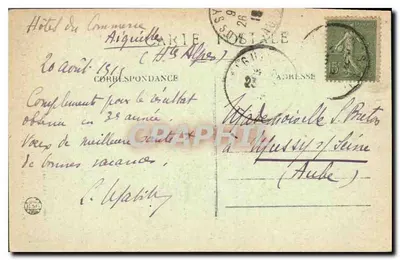 Hôtel du Commerce
Aiguilles
(Htes Alpes)
CARTE POSTALE
20 août 19
CORRESPONDANCE
ADRESSE
Compliments pour le résultat
obtenu en 3e année.
Vœux de meilleure santé et
de bonnes vacances.
Mademoiselle S.
à Mussy s/ Seine
(Aube)
CPARAMA